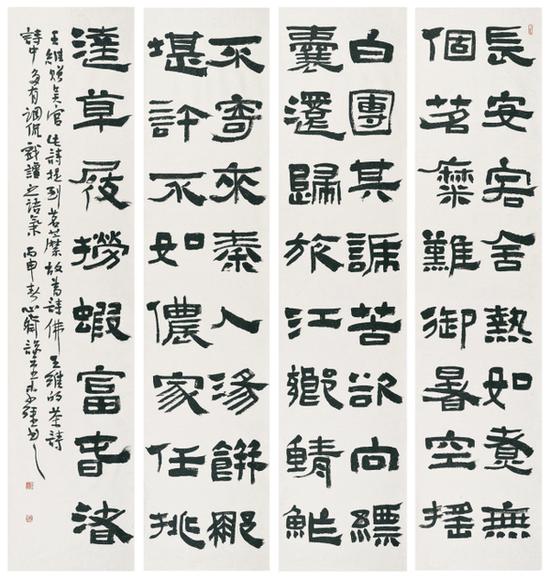 長安客舍熱如煮無
個茗糜難御暑空搖
白團其諦苦欲向縹
囊還歸旅江鄉鯖鮓
不寄來秦人湯餅那
堪許不如儂家任挑
達草屐撈蝦富春渚
王維贈吳官 此詩提到茗糜故為詩佛王維的茶詩
詩中多有調侃戲謔之語氣 丙申春心齋